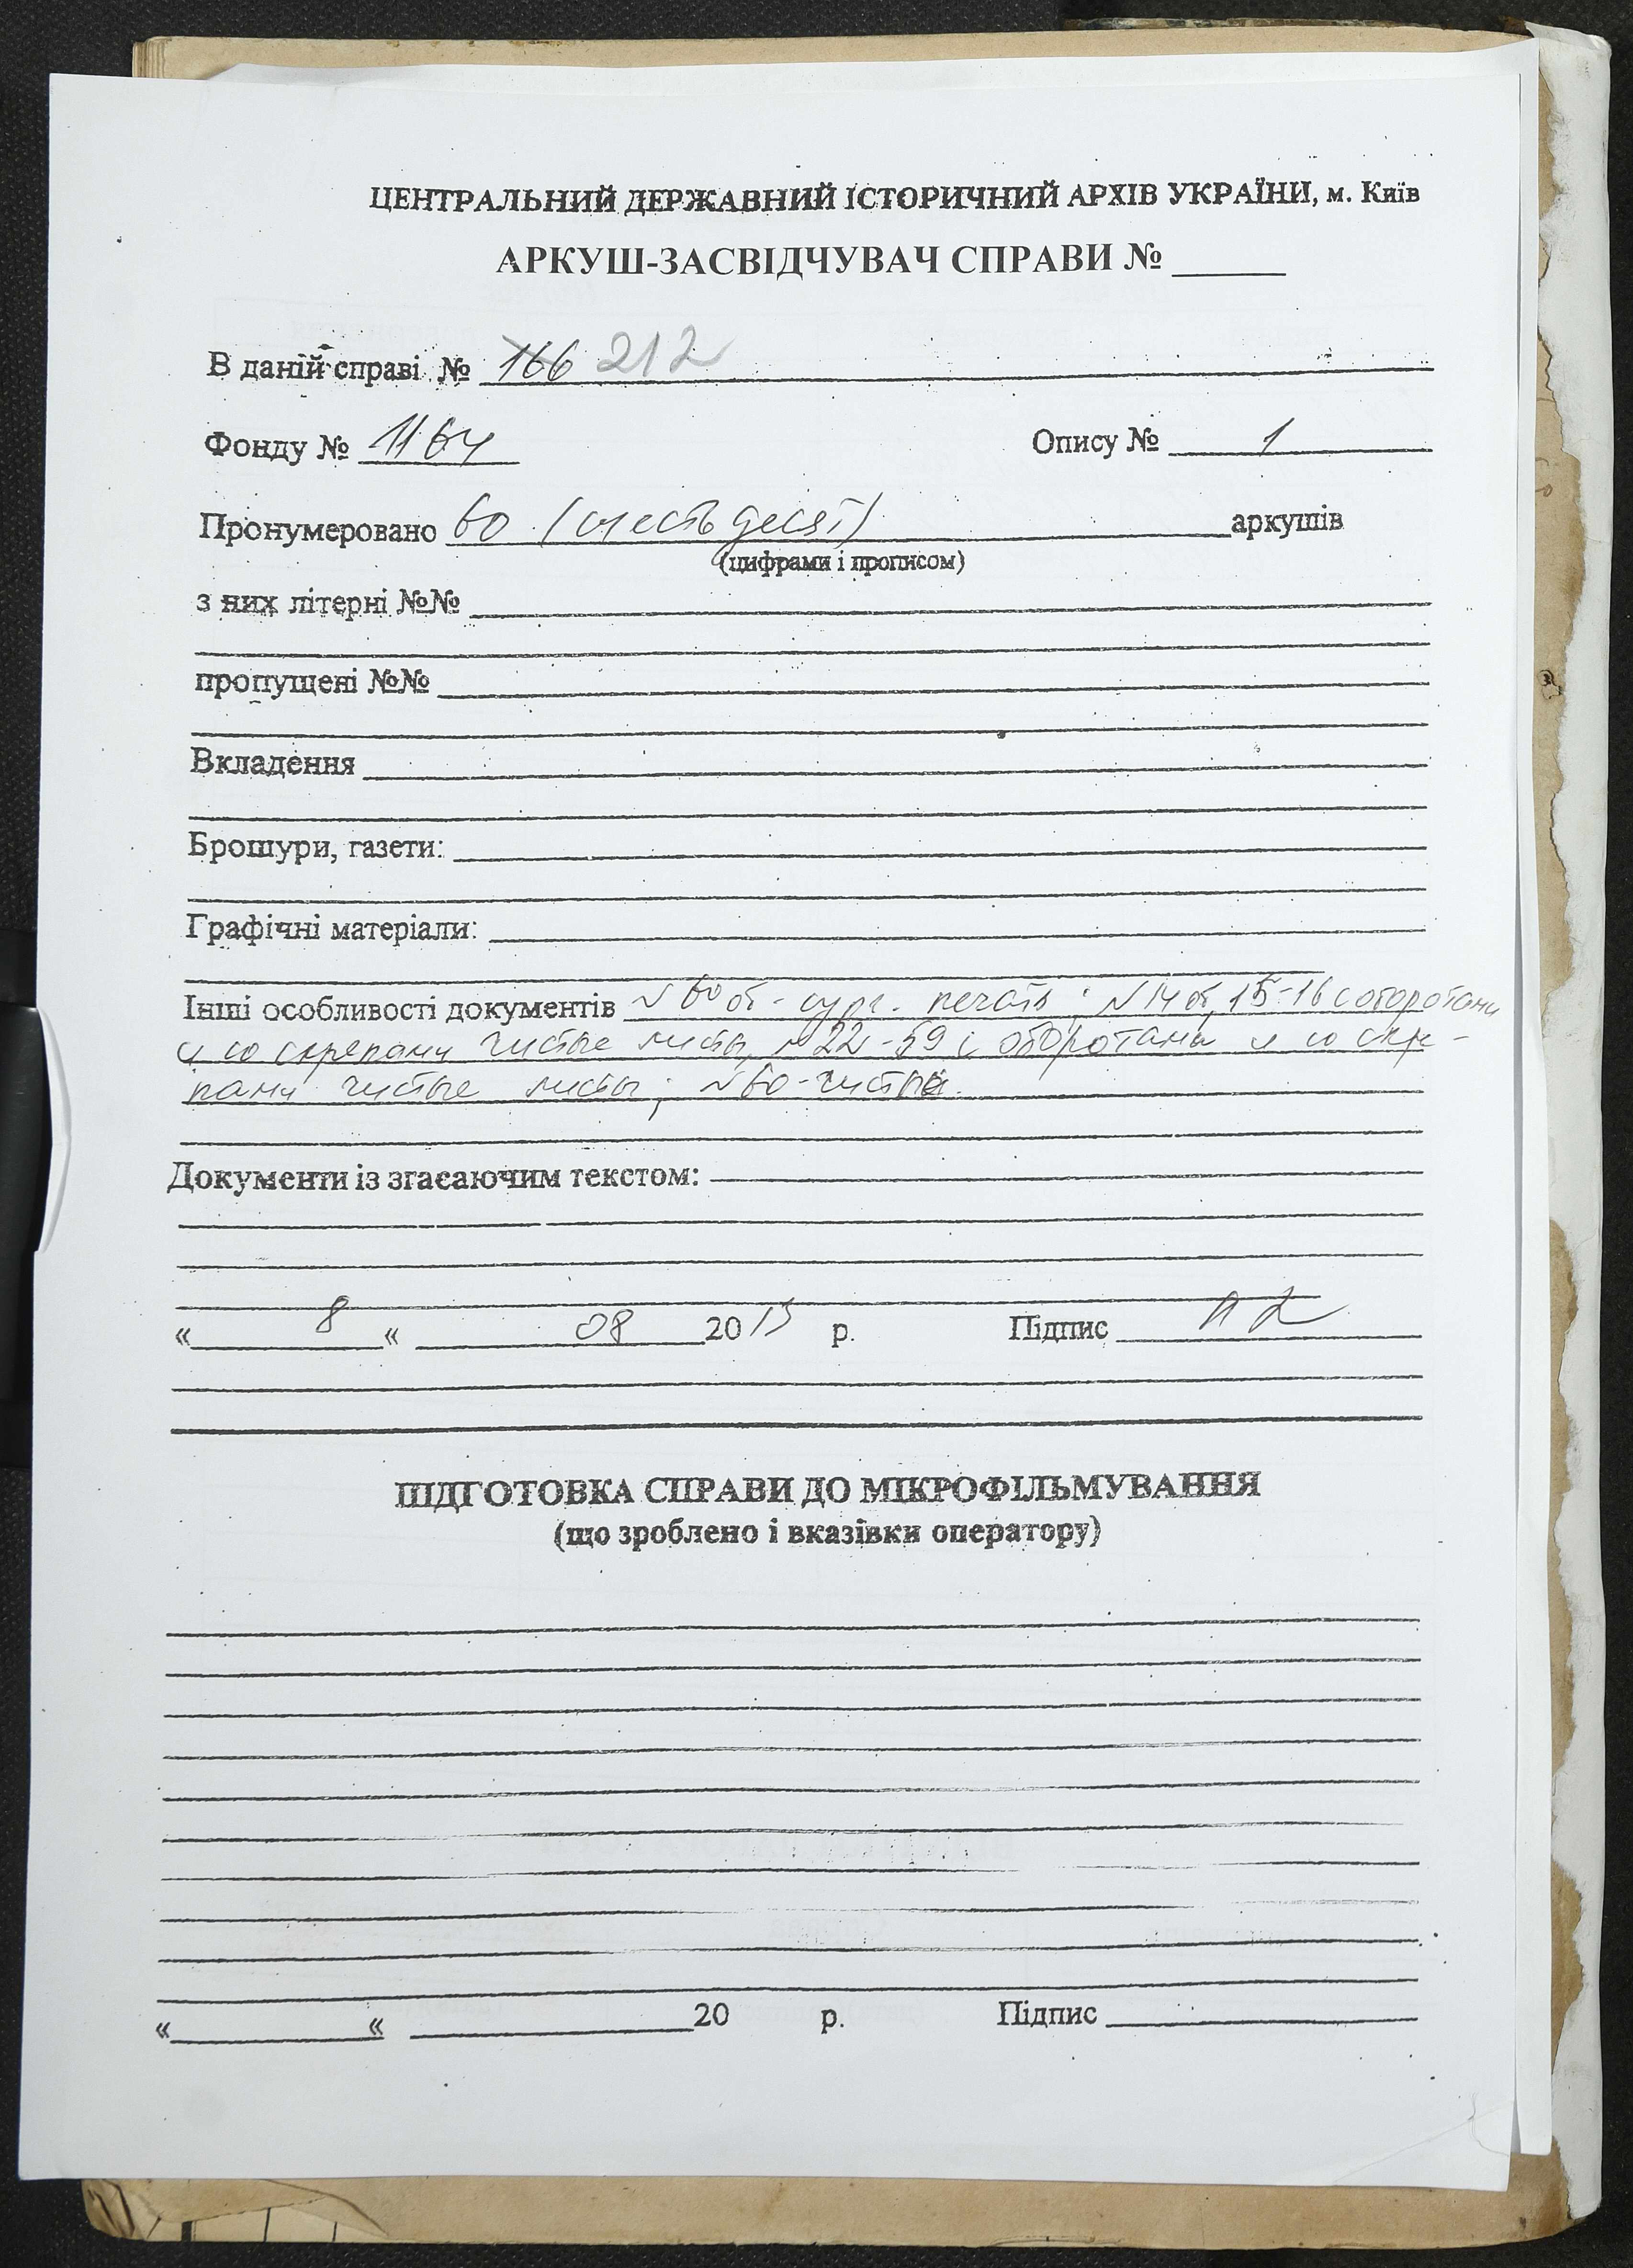 ЦЕНТРАЛЬНИЙ ДЕРЖАВНИЙ ІСТОРИЧНИЙ АРХІВ УКРАЇНИ, м. Київ
АРКУШ-ЗАСВІДЧУВАЧ СПРАВИ № ______
В даній справі № 166 212
Фонду № 1164 Опису № 1
Пронумеровано 60 (шестьдесят) аркушів
(цифрами і прописом)
з них літерні №№
пропущені №№
Вкладення
Брошури, газети:
Графічні матеріали:
Інші особливості документів №60 об - сург. печать; №14 об, 15-16 с оборотами
и со скрепами чистые листы, №22-59 с оборотами и со скре-
пами чистые листы; №60-чистый.
Документи із згасаючим текстом:
« 8 « 08 2013 р. Підпис
ПІДГОТОВКА СПРАВИ ДО МІКРОФІЛЬМУВАННЯ
(що зроблено і вказівки оператору)
« « 20 р. Підпис